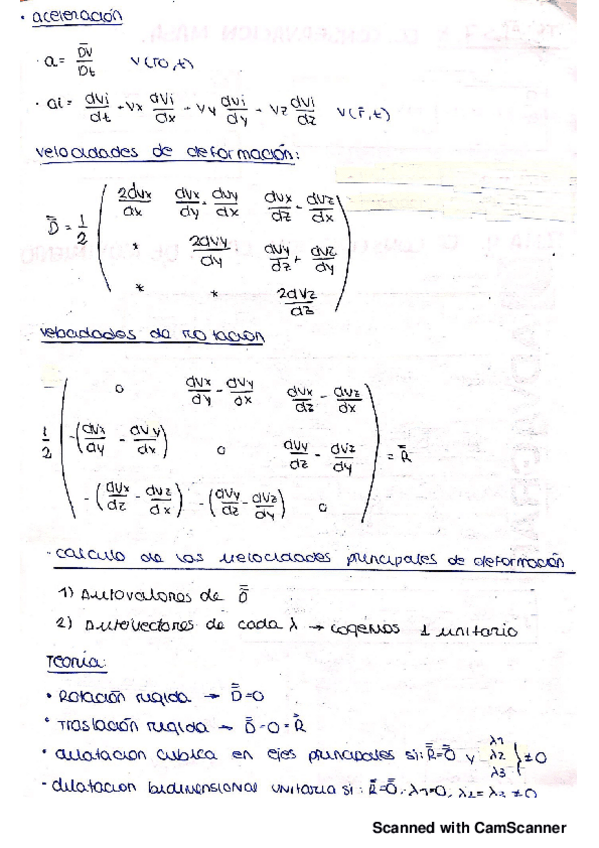 · aceleración
· a = Dv̄/Dt    v(r0,t)
· ai = dvi/dt + vx dvi/dx + vy dvi/dy + vz dvi/dz    v(r̄,t)
velocidades de deformación:
2dvx/dx    dvx/dy + dvy/dx    dvx/dz + dvz/dx
D̿ = 1/2    *    2dvy/dy    dvy/dz + dvz/dy
*    *    2dvz/dz
velocidades de rotación
0    dvx/dy - dvy/dx    dvx/dz - dvz/dx
1/2    -(dvx/dy - dvy/dx)    0    dvy/dz - dvz/dy    = R̿
-(dvx/dz - dvz/dx)    -(dvy/dz - dvz/dy)    0
· calculo de las velocidades principales de deformación
1) Autovalores de D̿
2) Autovectores de cada λ → cogemos 1 unitario
Teoría:
• Rotación rígida → D̿=0
• Traslación rígida → D̿=0=R̿
• dilatacion cubica en ejes principales si: R̿=0̿ y λ1 λ2 λ3 } ≠0
- dilatacion bidimensional unitaria si: R̿=0̿, λ1=0, λ2=λ3≠0
Scanned with CamScanner